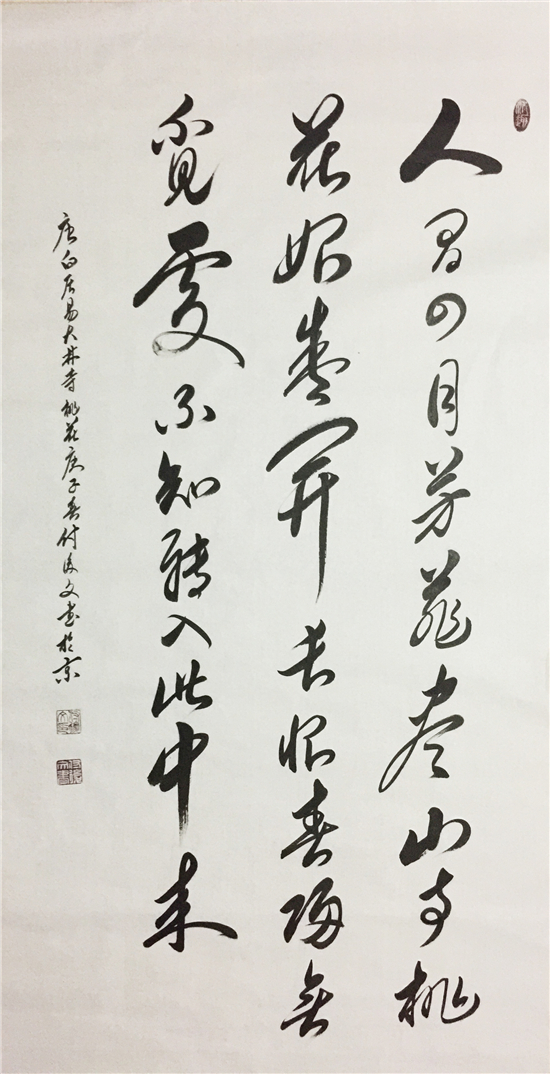 人間四月芳菲尽山寺桃
花始盛開長恨春歸無
覓處不知轉入此中来
唐白居易大林寺桃花庚子春付文书於京